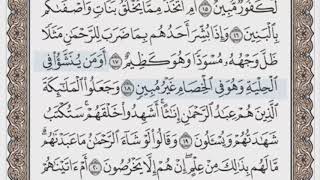 لَكَفُورٌ مُّبِينٌ ۝١٥ أَمِ ٱتَّخَذَ مِمَّا يَخْلُقُ بَنَاتٍ وَأَصْفَىٰكُم
بِٱلْبَنِينَ ۝١٦ وَإِذَا بُشِّرَ أَحَدُهُم بِمَا ضَرَبَ لِلرَّحْمَٰنِ مَثَلًا
ظَلَّ وَجْهُهُۥ مُسْوَدًّا وَهُوَ كَظِيمٌ ۝١٧ أَوَمَن يُنَشَّؤُا۟ فِى
ٱلْحِلْيَةِ وَهُوَ فِى ٱلْخِصَامِ غَيْرُ مُبِينٍ ۝١٨ وَجَعَلُوا۟ ٱلْمَلَٰٓئِكَةَ
ٱلَّذِينَ هُمْ عِبَٰدُ ٱلرَّحْمَٰنِ إِنَٰثًا ۚ أَشَهِدُوا۟ خَلْقَهُمْ ۚ سَتُكْتَبُ
شَهَٰدَتُهُمْ وَيُسْـَٔلُونَ ۝١٩ وَقَالُوا۟ لَوْ شَآءَ ٱلرَّحْمَٰنُ مَا عَبَدْنَٰهُم ۗ
مَّا لَهُم بِذَٰلِكَ مِنْ عِلْمٍ ۖ إِنْ هُمْ إِلَّا يَخْرُصُونَ ۝٢٠ أَمْ ءَاتَيْنَٰهُمْ